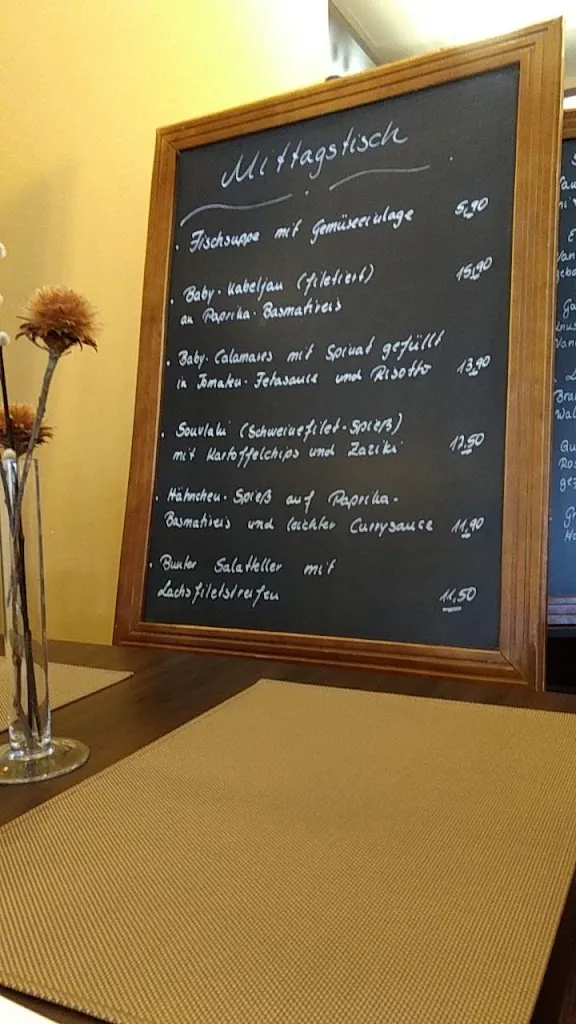 Mittagstisch
• Fischsuppe mit Gemüseeinlage 5,90
• Baby-Kabeljau (filetiert) 15,90
an Paprika-Basmatireis
• Baby-Calamares mit Spinat gefüllt
in Tomaten-Fetasauce und Risotto 13,90
• Souvlaki (Schweinefilet-Spieß)
mit Kartoffelchips und Zaziki 12,50
• Hähnchen-Spieß auf Paprika-
Basmatireis und leichter Currysauce 11,90
• Bunter Salatteller mit
Lachsfiletstreifen 11,50